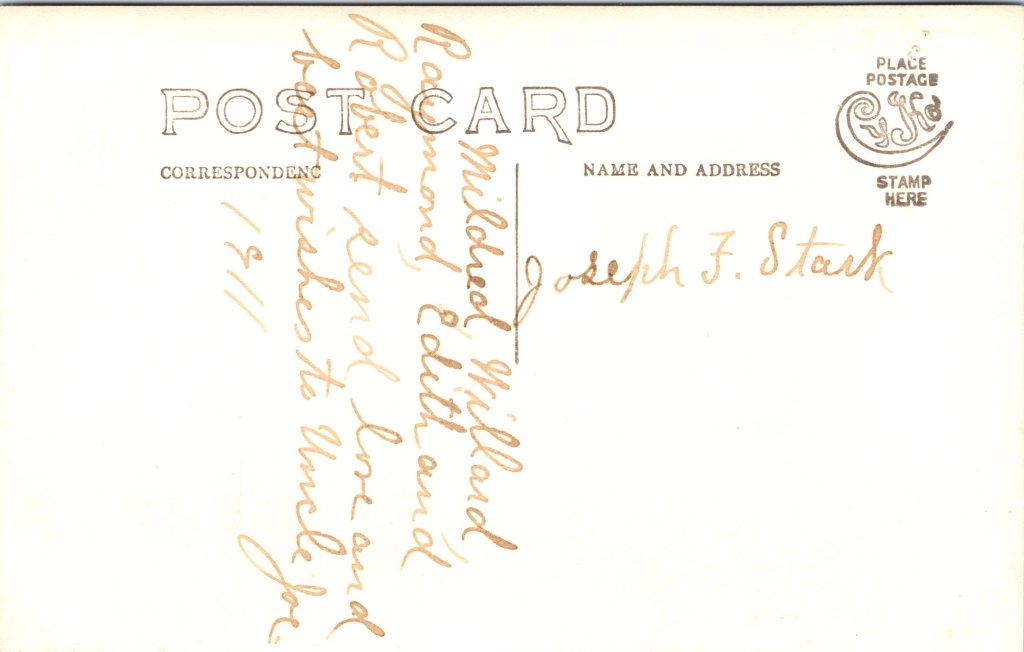 POST CARD
CORRESPONDENC
NAME AND ADDRESS
PLACE
POSTAGE
CyKo
STAMP
HERE
Joseph F. Stark
Mildred, Willard,
Raymond, Edith and
Robert send love and
best wishes to Uncle Joe.
1911